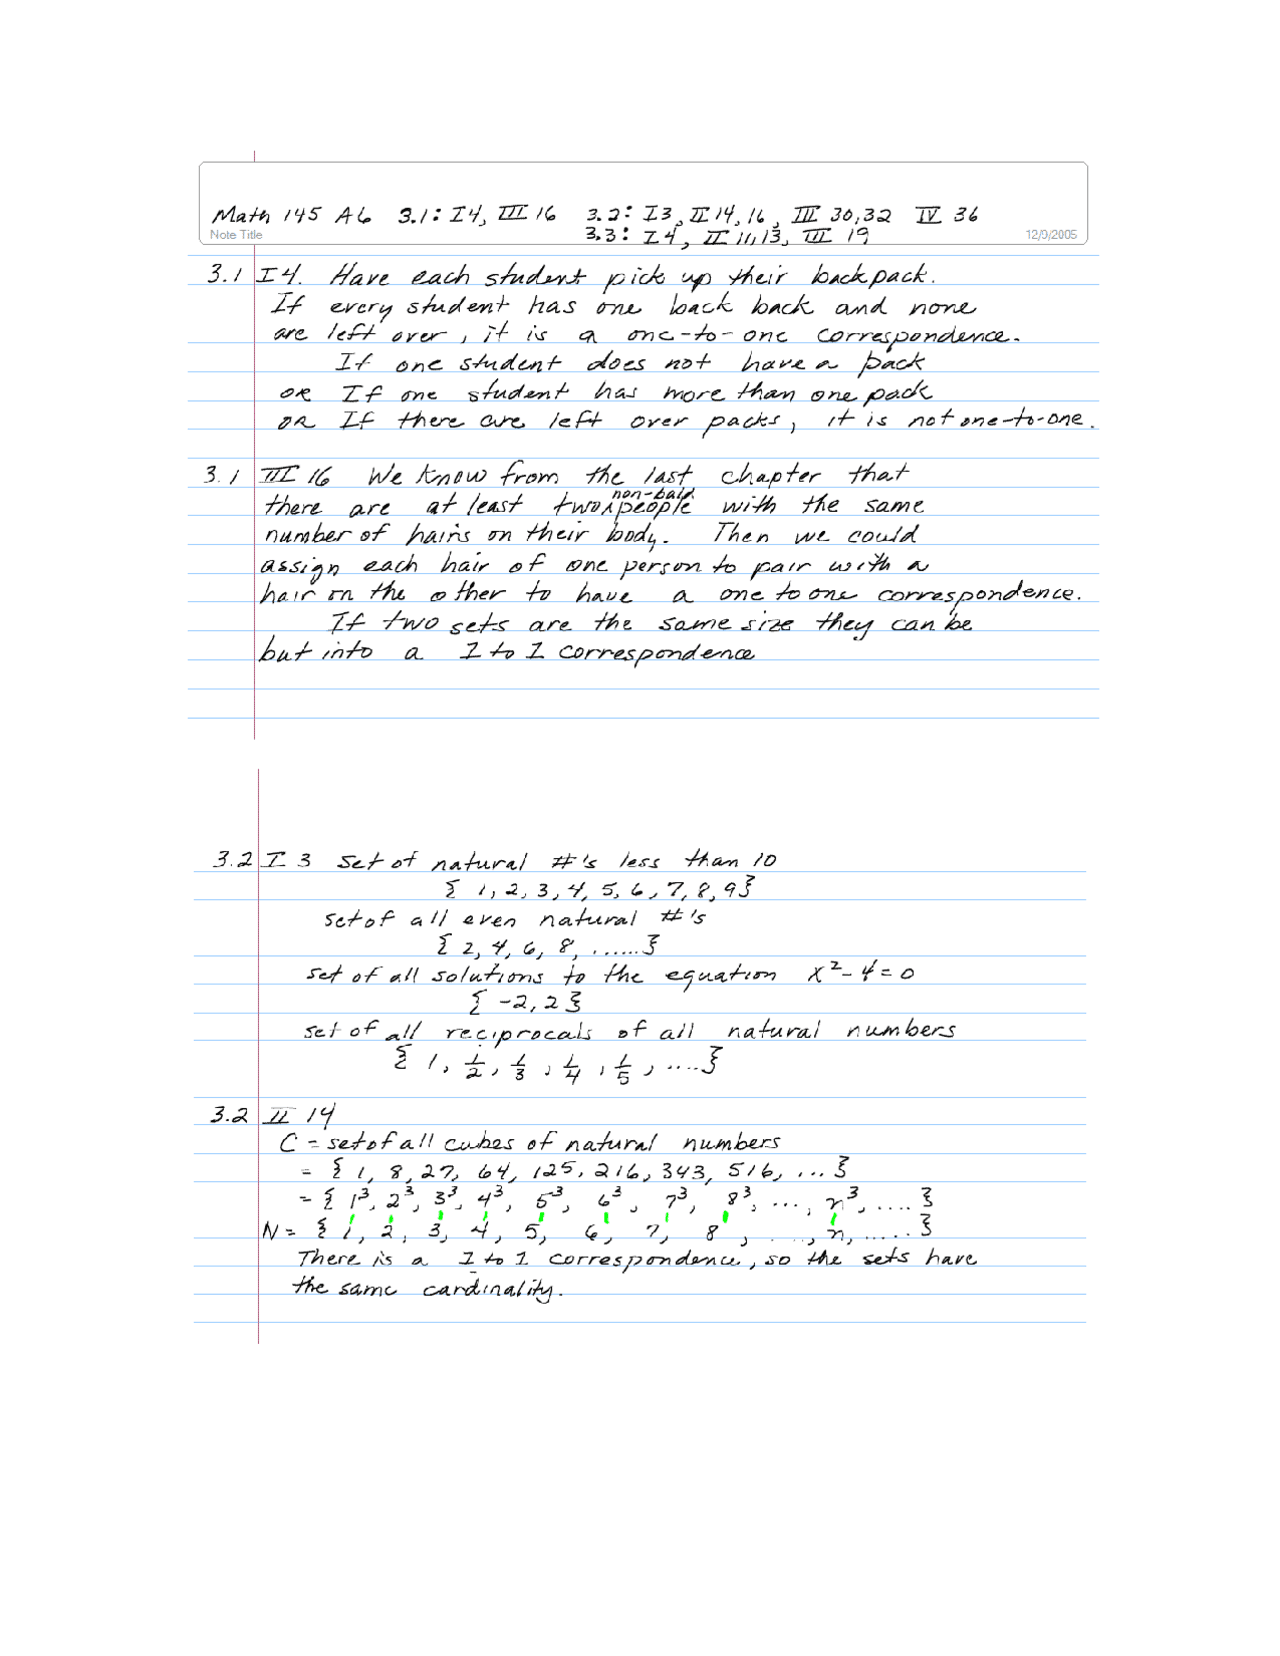 Math 145 A6 3.1: I4, III 16 3.2: I3, II 14, 16, III 30,32 IV 36
3.3: I 4, II 11,13, III 19
Note Title 12/9/2005
3.1 I 4. Have each student pick up their backpack.
If every student has one back back and none
are left over, it is a one-to-one correspondence.
If one student does not have a pack
OR If one student has more than one pack
OR If there are left over packs, it is not one-to-one.
3.1 III 16 We know from the last chapter that
non-bald
there are at least two people with the same
number of hairs on their body. Then we could
assign each hair of one person to pair with a
hair on the other to have a one to one correspondence.
If two sets are the same size they can be
but into a 1 to 1 correspondence
3.2 I 3 set of natural #'s less than 10
{ 1, 2, 3, 4, 5, 6, 7, 8, 9 }
set of all even natural #'s
{ 2, 4, 6, 8, ...... }
set of all solutions to the equation x² - 4 = 0
{ -2, 2 }
set of all reciprocals of all natural numbers
{ 1, 1/2, 1/3, 1/4, 1/5, .... }
3.2 II 14
C = set of all cubes of natural numbers
= { 1, 8, 27, 64, 125, 216, 343, 516, ... }
= { 1³, 2³, 3³, 4³, 5³, 6³, 7³, 8³, ..., n³, .... }
N = { 1, 2, 3, 4, 5, 6, 7, 8, ...., n, ..... }
There is a 1 to 1 correspondence, so the sets have
the same cardinality.